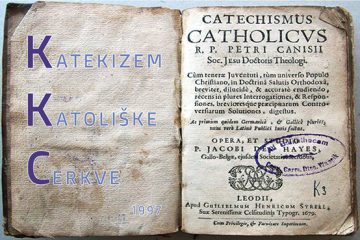 KATEKIZEM
KATOLIŠKE
CERKVE
1997
CATECHISMUS
CATHOLICVS
R. P. PETRI CANISII
Soc. Jesu Doctoris Theologi.
Cùm teneræ Juventuti, tùm universo Populo
Christiano, in Doctrinâ Salutis Orthodoxâ,
breviter, dilucidè, & accuratè erudiendo,
recens in plures Interrogationes, & Respon-
siones, brevioresque præcipuarum Contro-
versiarum Solutiones, digestus.
Ac primùm quidem Germanicè, & Gallicè pluries,
nunc verò Latinè Publici Juris factus.
OPERA, ET STUDIO
P. JACOBI DES HAYES,
Gallo-Belgæ, ejusdem Societatis
K3
LEODII,
Apud GUILIELMUM HENRICUM STREEL,
Suæ Serenissimæ Celsitudinis Typogr. 1679.
Cum Privilegio, & Facultate Superiorum.